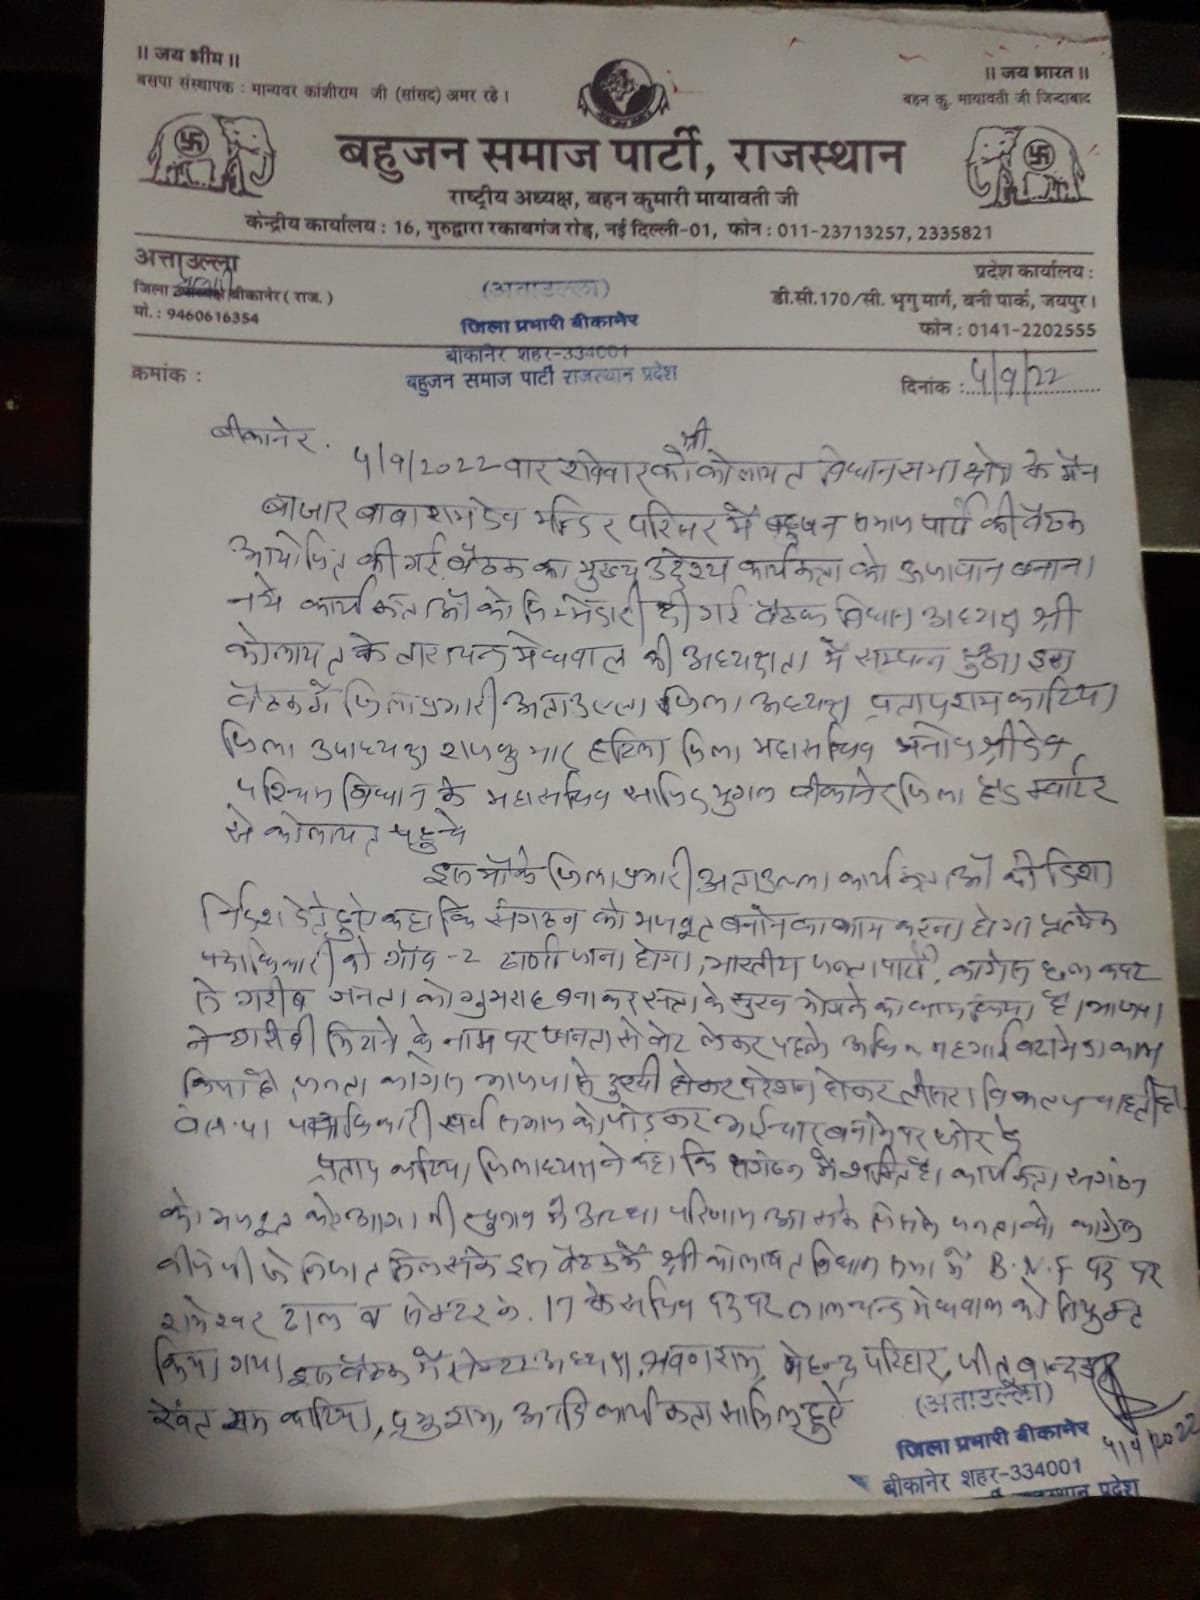 ॥ जय भीम ॥
॥ जय भारत ॥
बसपा संस्थापक : मान्यवर कांशीराम जी (सांसद) अमर रहे ।
बहन कु. मायावती जी जिन्दाबाद
बहुजन समाज पार्टी, राजस्थान
राष्ट्रीय अध्यक्ष, बहन कुमारी मायावती जी
केन्द्रीय कार्यालय : 16, गुरुद्वारा रकाबगंज रोड़, नई दिल्ली-01, फोन : 011-23713257, 2335821
अत्ताउल्ला
जिला बीकानेर ( राज. )
मो. : 9460616354
(अताउल्ला)
जिला प्रभारी बीकानेर
बीकानेर शहर-334001
बहुजन समाज पार्टी राजस्थान प्रदेश
प्रदेश कार्यालय :
डी.सी.170/सी. भृगु मार्ग, बनी पार्क, जयपुर ।
फोन : 0141-2202555
क्रमांक :
दिनांक : 4/9/22
बीकानेर .
4/9/2022 वार रविवार को श्री कोलायत विधानसभा क्षेत्र के मैन
बाजार बाबा रामदेव मन्दिर परिसर में बहुजन समाज पार्टी की बैठक
आयोजित की गई. बैठक का मुख्य उद्देश्य कार्यकर्ता को बनाना
नये कार्यकर्ताओं को जिम्मेदारी दी गई बैठक विधान अध्यक्ष श्री
कोलायत के ताराचन्द मेघवाल की अध्यक्षता में सम्पन्न हुआ। इस
बैठक में जिला प्रभारी अताउल्ला जिला अध्यक्ष प्रतापराम काटिया
जिला उपाध्यक्ष राजकुमार हटिला जिला महासचिव मनोज श्रीदेव
पश्चिम विधान के महासचिव साजिद मुगल बीकानेर जिला हैड क्वार्टर
से कोलायत पहुचे
इस मौके जिला प्रभारी अताउल्ला कार्यकर्ताओं को दिशा
निर्देश देते हुऐ कहा कि संगठन को मजबूत बनाने का काम करना होगा प्रत्येक
पदाधिकारी को गाँव-2 ढाणी जाना होगा, भारतीय जनता पार्टी, कांग्रेस छल कपट
से गरीब जनता को गुमराह बनाकर सत्ता के सुख भोगने का काम किया है। भाजपा
ने गरीबी मिटाने के नाम पर जनता से वोट लेकर पहले अधिक महगाई बढाने का काम
किया है। जनता कांग्रेस भाजपा से दुखी होकर परेशान होकर तीसरा विकल्प चाहती है।
ब.स.पा पदाधिकारी सर्व समाज को जोड़कर भाईचारा बनाने पर जोर दे
प्रताप काटिया जिलाध्यक्ष ने कहा कि संगठन में शक्ति है। कार्यकर्ता संगठन
को मजबूत करे आगामी चुनाव में अच्छा परिणाम आ सके जिससे जनता को कांग्रेस
बीजेपी से निजात मिल सके इस बैठक में श्री कोलायत विधानसभा में B.V.F पद पर
रामेश्वर ढाल व सेक्टर के. 17 के सचिव पद पर लालचन्द मेघवाल को नियुक्त
किया गया इस बैठक में सेक्टर अध्यक्ष, श्रवणराम, महेन्द्र परिहार, जीत
रेवंतराम काटिया, प्रभुराम, आदि कार्यकर्ता सामिल हुऐ
(अताउल्ला)
जिला प्रभारी बीकानेर
4/9/2022
बीकानेर शहर-334001
प्रदेश